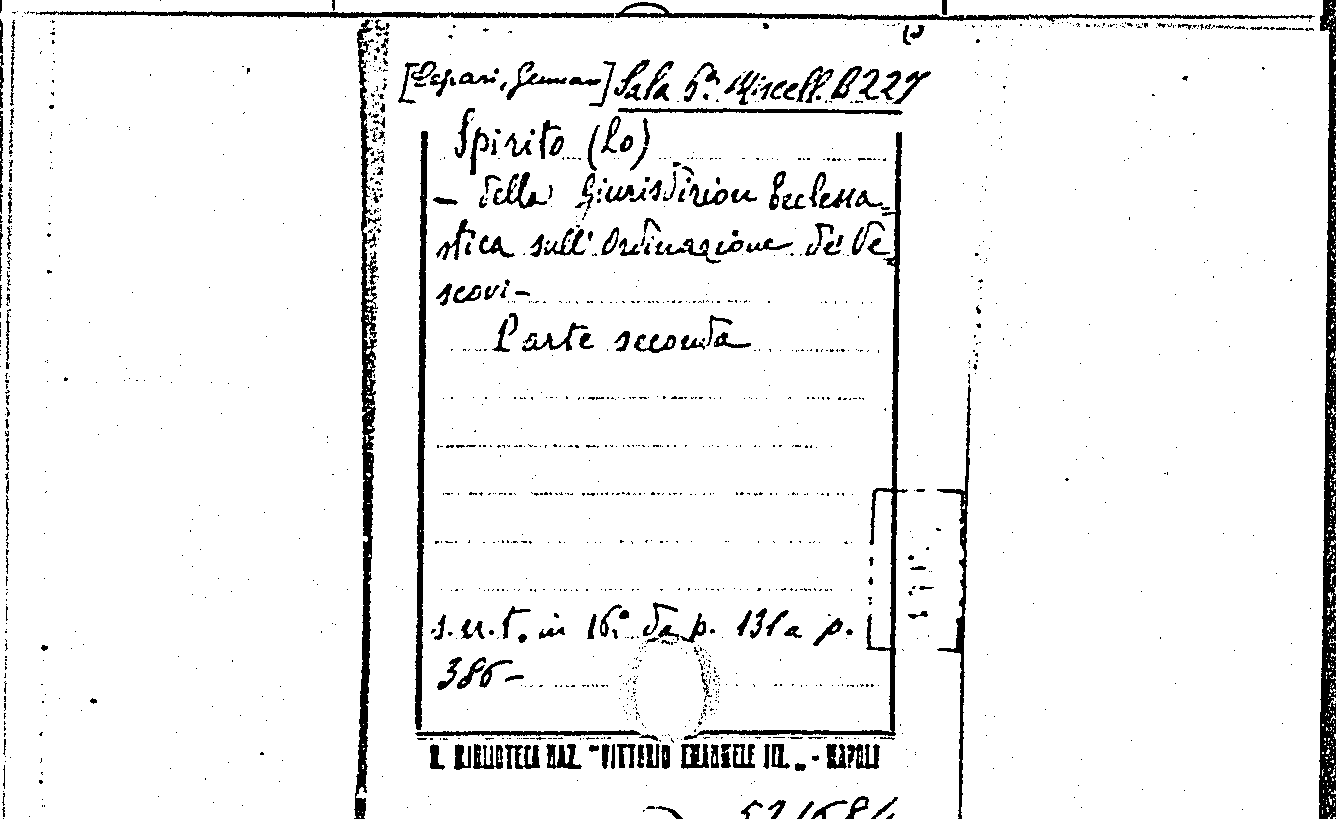 [Cepari, Gennaro] Sala 6ª. Miscell. B 227
Spirito (Lo)
– della Giurisdizion Ecclesia=
stica sull' Ordinazione de' Ve=
scovi –
Parte seconda
s.n.t. in 16.° da p. 131 a p.
386 –
R. BIBLIOTECA NAZ. "VITTORIO EMANUELE III." - NAPOLI